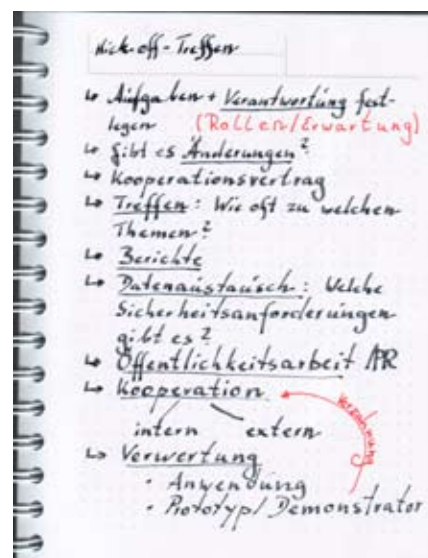 Kick-off-Treffen
↳ Aufgaben + Verantwortung fest-
legen (Rollen/Erwartung)
↳ Gibt es Änderungen?
↳ Kooperationsvertrag
↳ Treffen: Wie oft zu welchen
Themen?
↳ Berichte
↳ Datenaustausch: Welche
Sicherheitsanforderungen
gibt es?
↳ Öffentlichkeitsarbeit PR
↳ Kooperation
intern extern
Verzahnung
↳ Verwertung
· Anwendung
· Prototyp/Demonstrator